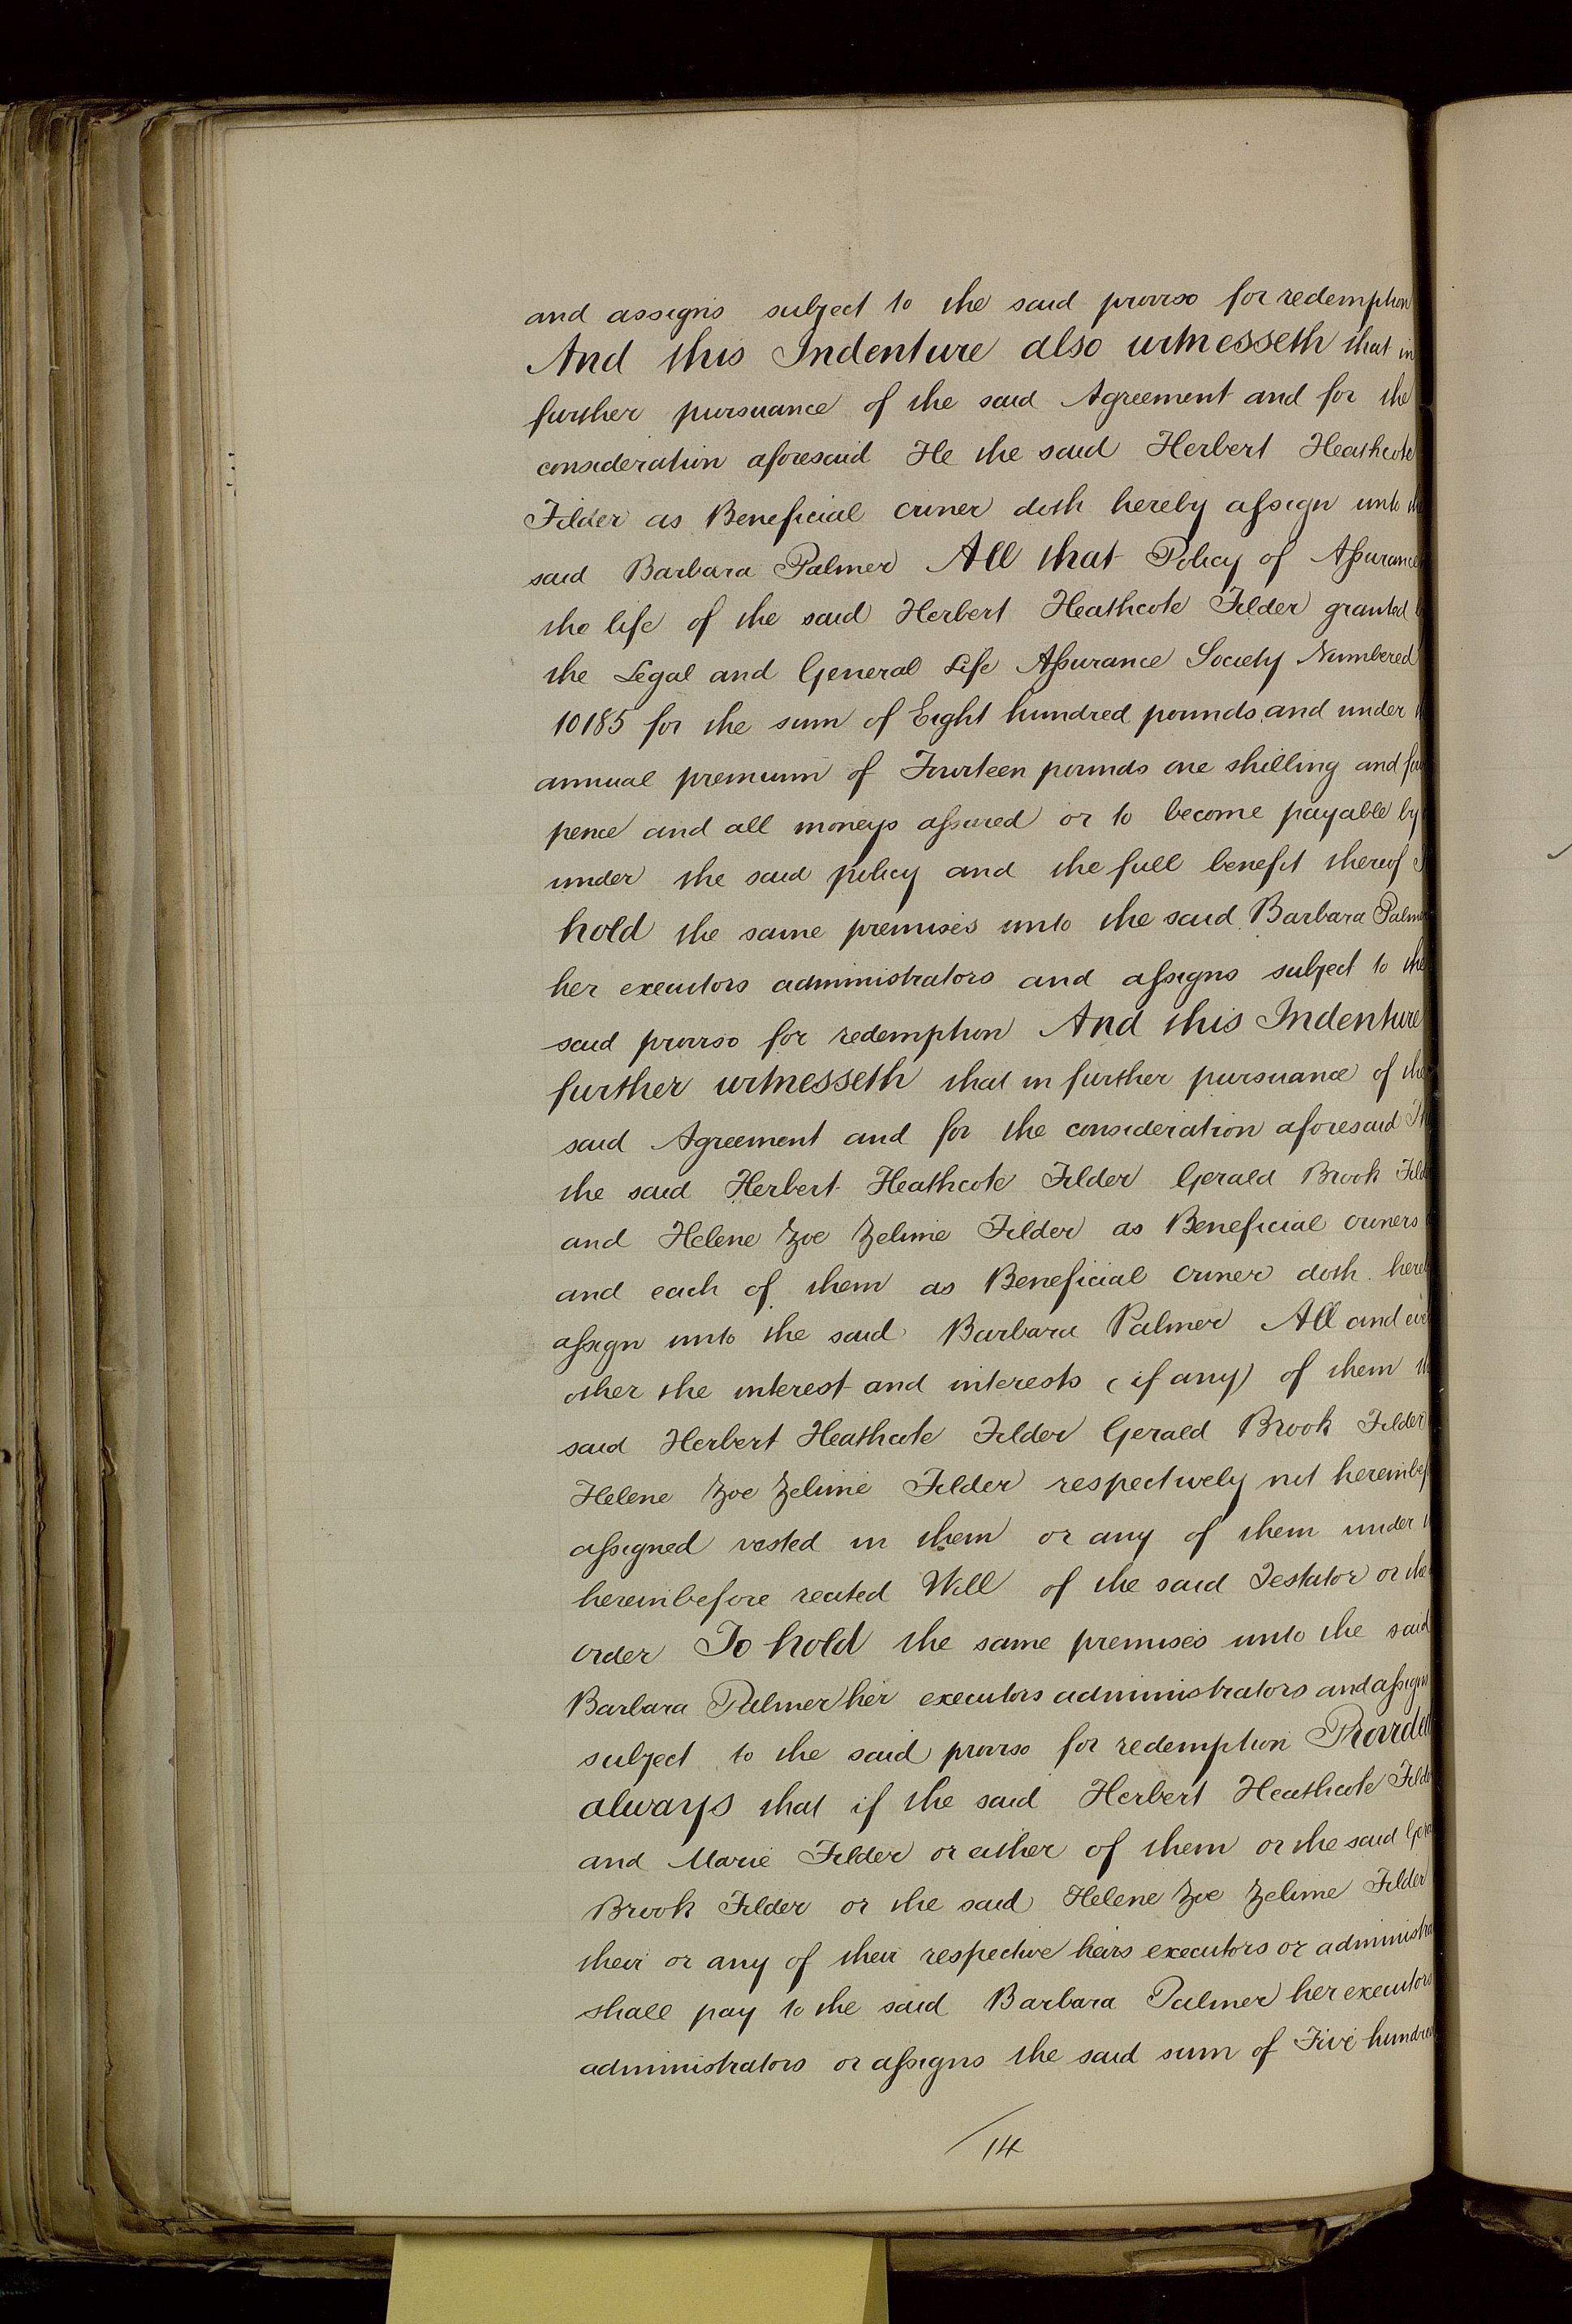 and assigns subject to the said proviso for redemption
And this Indenture also witnesseth that in
further pursuance of the said Agreement and for the
consideration aforesaid He the said Herbert Heathcote
Filder as Beneficial owner doth hereby assign unto the
said Barbara Palmer All that Policy of Assurance
the life of the said Herbert Heathcote Filder granted
the Legal and General Life Assurance Society Numbered
10185 for the sum of Eight hundred pounds and under
annual premium of Fourteen pounds one shilling and
pence and all moneys assured or to become payable by
under the said policy and the full benefit thereof
hold the same premises unto the said Barbara Palmer
her executors administrators and assigns subject to the
said proviso for redemption And this Indenture
further witnesseth that in further pursuance of the
said Agreement and for the consideration aforesaid
the said Herbert Heathcote Filder Gerald Brook Filder
and Helene Zoe Zelime Filder as Beneficial owners
and each of them as Beneficial owner doth hereby
assign unto the said Barbara Palmer All and
other the interest and interests (if any) of them
said Herbert Heathcote Filder Gerald Brook Filder
Helene Zoe Zelime Filder respectively not hereinbef
assigned vested in them or any of them under
hereinbefore recited Will of the said Testator or the
order To hold the same premises unto the said
Barbara Palmer her executors administrators and assigns
subject to the said proviso for redemption Provided
always that if the said Herbert Heathcote Filder
and Marie Filder or either of them or the said Gera
Brook Filder or the said Helene Zoe Zelime Filder
their or any of their respective heirs executors or administra
shall pay to the said Barbara Palmer her executors
administrators or assigns the said sum of Five hundred
14